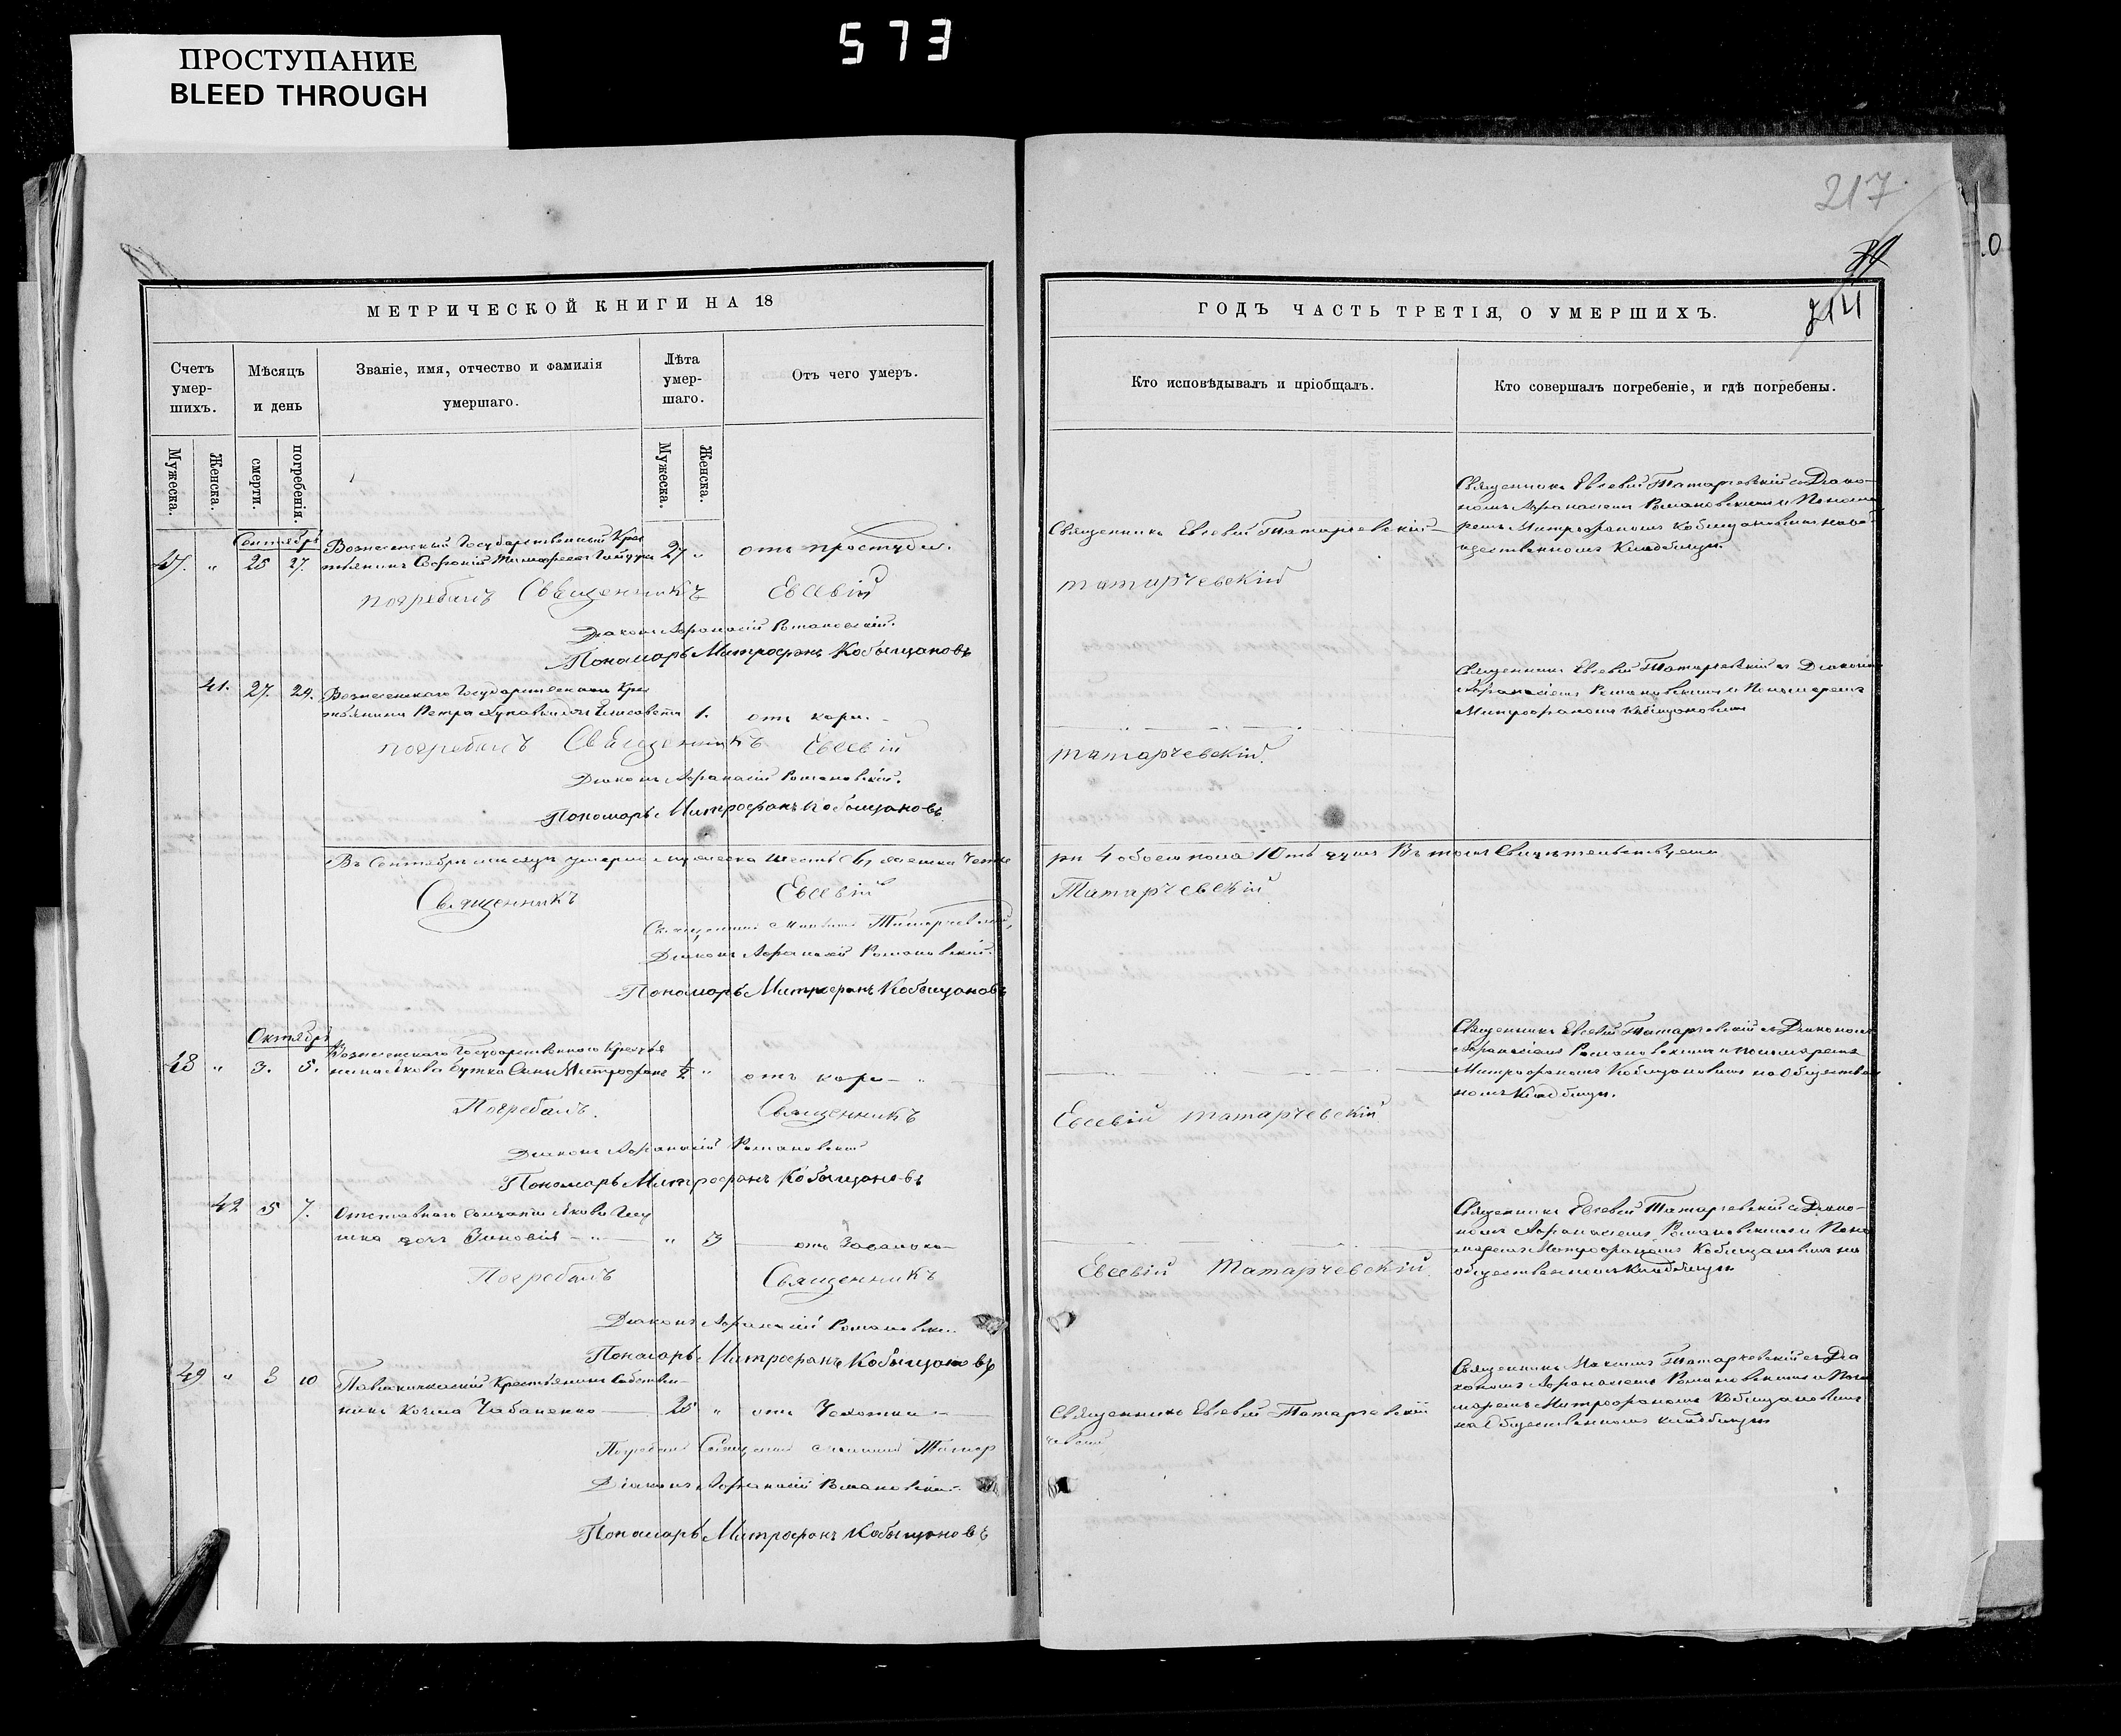 573
ПРОСТУПАНИЕ
BLEED THROUGH
217
214
МЕТРИЧЕСКОЙ КНИГИ НА 18
ГОДЪ ЧАСТЬ ТРЕТІЯ, О УМЕРШИХЪ.
Счетъ умер-шихъ.
Мѣсяцъ и день
Званіе, имя, отчество и фамилія умершаго.
Лѣта умер-шаго.
Отъ чего умеръ.
Кто исповѣдывалъ и пріобщалъ.
Кто совершалъ погребеніе, и гдѣ погребены.
Мужеска.
Женска.
смерти.
погребенія.
Мужеска.
Женска.
Сентябрь
47. " 25 27.
Вознесенскій Государственный Крес
тьянинъ Тимофеев 27 "
отъ простуды.
Священникъ Евсевій Татарчевскій
Священникъ Евсевій Татарчевскій съ Діако-
номъ Афанасіемъ Романовскимъ и Понома
ремъ Митрофаномъ Кобыщановымъ на об
щественномъ Кладбищи.
погребалъ Священникъ Евсевій
Татарчевскій
Діаконъ Афанасій Романовскій.
Пономарь Митрофанъ Кобыщановъ
41. 27. 29.
Вознесенскаго Государственнаго Крес
тьянина Петра дочь Елисавета 1.
отъ кори.
Священникъ Евсевій Татарчевскій съ Діакономъ
Афанасіемъ Романовскимъ и Пономаремъ
Митрофаномъ Кобыщановымъ
погребалъ Священникъ Евсевій
Татарчевскій.
Діаконъ Афанасій Романовскій.
Пономарь Митрофанъ Кобыщановъ.
Въ Сентябрѣ месяцѣ умерло мужеска шесть 6, женска Четы
ри 4 обоего пола 10ть душъ Въ томъ Свидѣтельствуемъ
Священникъ Евсевій
Татарчевскій
Священникъ Татарчевскій
Діаконъ Афанасій Романовскій.
Пономарь Митрофанъ Кобыщановъ
Октябрь
48 " 3. 5.
Вознесенскаго Государственнаго Крестья
нина Якова Бутко Сынъ Митрофанъ 1/2 "
отъ кори
Священникъ Евсевій Татарчевскій съ Діакономъ
Афанасіемъ Романовскимъ и пономаремъ
Митрофаномъ Кобыщановымъ на Обществен
номъ Кладбищи.
Погребалъ. Священникъ
Евсевій Татарчевскій
Діаконъ Афанасій Романовскій
Пономарь Митрофанъ Кобыщановъ
42 5 7.
Отставнаго Солдата Якова
дочь Зиновія " 3
Священникъ Евсевій Татарчевскій съ Діако-
номъ Афанасіемъ Романовскимъ и Поно
маремъ Митрофаномъ Кобыщановымъ на
общественномъ Кладбищи
Погребалъ Священникъ
Евсевій Татарчевскій
Діаконъ Афанасій Романовскій
Пономарь Митрофанъ Кобыщановъ
49 " 8 10
Крестьянинъ Собствен-
никъ Козма Чабаненко 25 "
отъ Чахотки
Священникъ Евсевій Татарчевскій
Священникъ Максимъ Татарчевскій съ Діа
кономъ Афанасіемъ Романовскимъ и Поно
маремъ Митрофаномъ Кобыщановымъ
на Общественномъ кладбищи
Погребалъ Священникъ Максимъ Татар
чевскій
Діаконъ Афанасій Романовскій.
Пономарь Митрофанъ Кобыщановъ